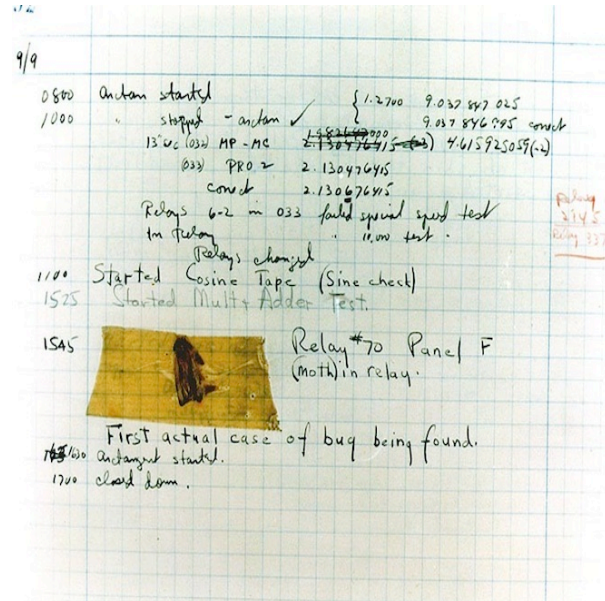 9/9
0800 Antan started { 1.2700 9.037 847 025
1000 " stopped - antan ✓ 9.037 846 995 correct
13" uc (032) MP - MC 2.130476415 (-3) 4.615925059(-2)
(033) PRO 2 2.130476415
correct 2.130676415
Relays 6-2 in 033 failed special speed test
in Relay " 10,000 test .
Relays changed
1100 Started Cosine Tape (Sine check)
1525 Started Mult + Adder Test.
1545 Relay #70 Panel F
(moth) in relay.
First actual case of bug being found.
1630 Antangent started.
1700 closed down.
Relay
Relay 337